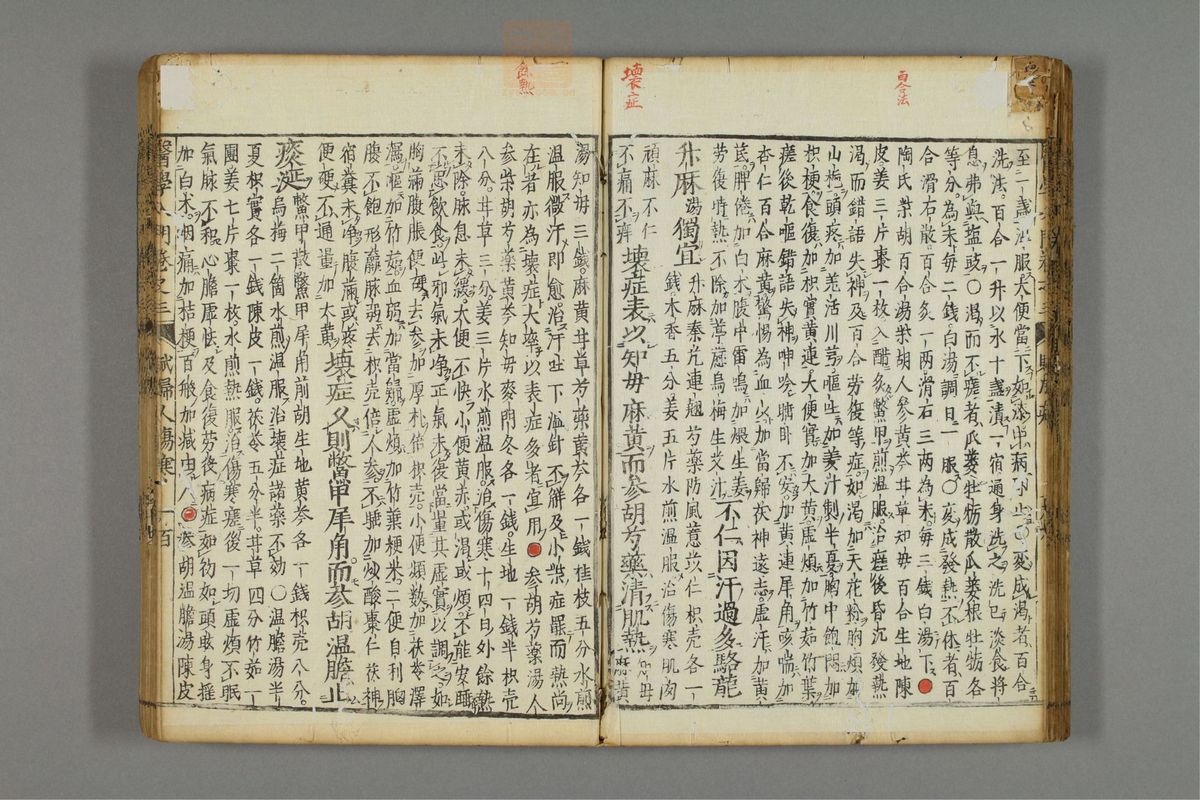 百合法
壞症
餘熱
至一盞溫服大便當下如
變成渴者百合
洗法百合一升以水十盞漬一宿通身洗之洗已淡食將
息弗與盐豉○渴而不瘥者瓜蔞牡蛎散瓜蔞根牡蛎各
等分為末每二錢白湯調日三服○変成發熱不休者百
合滑石散百合炙一兩滑石三兩為末每三錢白湯下
陶氏柴胡百合湯柴胡人參黃芩甘草知毋百合生地陳
皮姜三片棗一枚入醋炙鱉甲煎溫服治瘥後昏沉發熱
渴而錯語失神及百合劳復等症如渴加天花粉胸煩加
山梔頭疼加羌活川芎嘔吐加姜汁制半夏胸中飽悶加
枳梗食復加枳實黃連大便實加大黃虛煩加竹茹竹葉
瘥後乾嘔錯語失神呻吟睡卧不安加黃連犀角咳喘加
杏仁百合麻黃驚惕為血少加當歸茯神遠志虛汗加黃
芪脾倦加白朮腹中雷鳴加煨生姜
劳復時熱不除加葶藶烏梅生艾汁
不仁因汗過多駱龍
升麻湯獨宜
升麻秦艽連翹芍藥防風薏苡仁枳壳各一
錢木香五分姜五片水煎溫服治傷寒肌肉
頑麻不仁
不痛不痒
壞症表以知毋麻黃而參胡芍藥清肌熱
知毋
麻黃
湯知毋三錢麻黃甘草芍藥黃芩各一錢桂枝五分水煎
溫服微汗即愈治汗吐下溫針不觧及小柴症罷而熱尚
在者亦為壞症大率以表症多者宜用
參胡芍藥湯人
參柴胡芍藥黃芩知毋麥門冬各一錢生地一錢半枳壳
八分甘草三分姜三片水煎溫服治傷寒十四日外餘熱
未除脉息未緩大便不快小便黃赤或渴或煩不能安睡
不思飲食此邪氣未净正氣未復當量其虛實以調之如
胸滿腹脹便硬去參加厚朴倍枳壳小便煩数加茯苓澤
瀉嘔加竹茹血弱加當歸虛煩加竹葉粳米二便自利胸
腹不飽形羸脉弱去枳壳倍人參不睡加炒酸棗仁茯神
宿糞未净腹滿或疼
便硬不通量加大黃
壞症久則鱉甲犀角而參胡溫膽止
痰涎
鱉甲散鱉甲犀角前胡生地黃芩各一錢枳壳八分
烏梅二箇水煎溫服治壞症諸藥不効○溫膽湯半
夏枳實各一錢陳皮一錢茯苓五分半甘草四分竹茹一
團姜七片棗一枚水煎熱服治傷寒瘥後一切虛煩不眠
氣脉不和心膽虛怯及食復劳後病症如初如頭眩身搖
加白朮咽痛加桔梗百般加减由人
參胡溫膽湯陳皮
醫學入門卷之三
婦人傷寒
一百